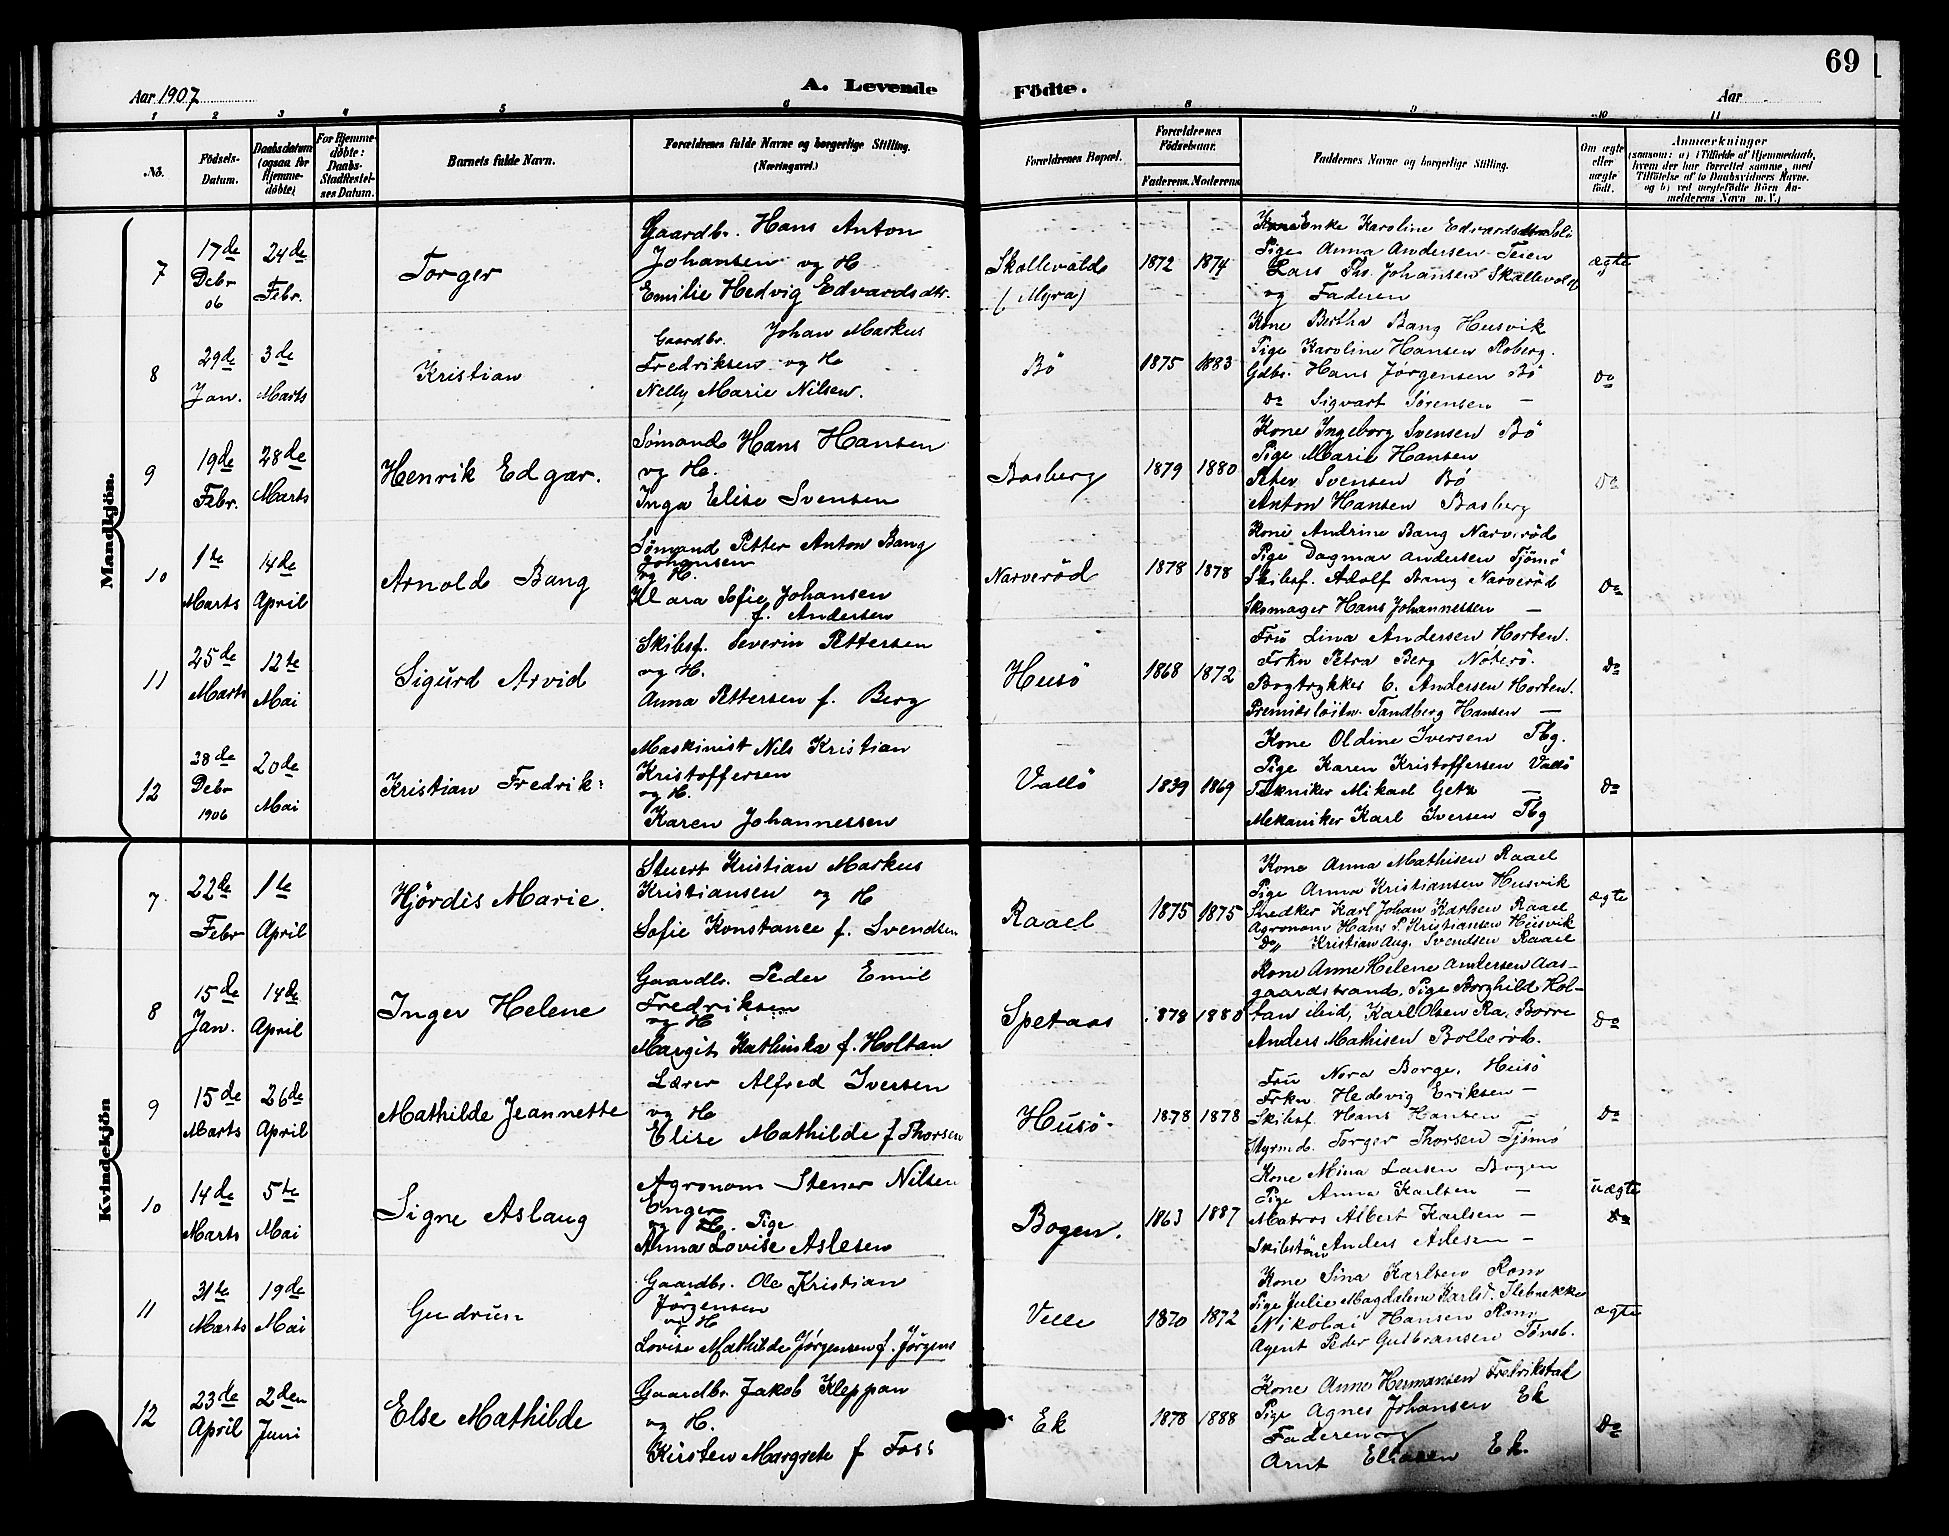 69
Aar 1907
A. Levende
Födte.
Aar
1 2 3 4 5 6 8 9 10 11
No.
Födsels-
Datum.
Daabsdatum
(ogsaa for
Hjemme-
döbte)
For Hjemme-
döbte:
Daabs-
Stadfæstel-
ses Datum.
Barnets fulde Navn.
Forældrenes fulde Navne og borgerlige Stilling.
(Næringsvei.)
Forældrenes Bopæl.
Forældrenes
Födselsaar.
Faderens.
Moderens.
Faddernes Navne og borgerlige Stilling.
Om ægte
eller
uægte
födt.
Anmærkninger
(saasom: a) i Tilfælde af Hjemmedaab,
hvem der har forrettet samme, med
Tilföielse af to Daabsvidners Navne.
og b) ved uægtefödte Börn An-
melderens Navn m. V.)
Mandkjön.
7
17de
Debr
06
24de
Febr.
Torger
Gaardbr. Hans Anton
Johansen og H
Emilie Hedvig Edvardsdtr.
Skallevold
(Myra)
1872 1874
Enke Karoline Edvardsdtr
Pige Anna Andersen Teien
Lars Ths. Johansen Skallevold
og Faderen
ægte
8
29de
Jan.
3de
Marts
Kristian
Gaardbr. Johan Markus
Fredriksen og H
Nelly Marie Nilsen.
Bö
1875 1883
Kone Bertha Bang Husvik
Pige Karoline Hansen Roberg.
Gdbr. Hans Jörgensen Bö
Do Sigvart Sörensen —
Do
9
19de
Febr.
28de
Marts
Henrik Edgar.
Sömand Hans Hansen
og H.
Inga Elise Svensen
Basberg
1879 1880
Kone Ingeborg Svensen Bö
Pige Marie Hansen
Peter Svensen Bö
Anton Hansen Basberg
Do
10
1te
Marts
14de
April
Arnold Bang
Sömand Petter Anton Bang
Johansen
og H.
Klara Sofie Johansen
f. Andersen
Narveröd
1878 1878
Kone Andrine Bang Narveröd
Pige Dagmar Andersen Tjömö
Skibsf. Adolf Bang Narveröd
Skomager Hans Johannessen —
Do
11
25de
Marts
12te
Mai
Sigurd Arvid
Skibsf. Severin Pettersen
og H.
Anna Pettersen f. Berg
Husö
1868 1872
Fru Lina Andersen Horten.
Frkn Petra Berg Nöterö.
Bogtrykker C. Andersen Horten.
Premierlöitn. Sandberg Hansen —
Do
12
28de
Debr
1906
20de
Mai
Kristian Fredrik
Maskinist Nils Kristian
Kristoffersen
og H.
Karen Johannessen
Vallö
1839 1869
Kone Oldine Iversen Tbg.
Pige Karen Kristoffersen Vallö
Tekniker Mikael Getz —
Mekaniker Karl Iversen Tbg
Do
Kvindekjön
7
22de
Febr
1te
April
Hjördis Marie.
Stuert Kristian Markus
Kristiansen og H
Sofie Konstance f. Svendsen
Raael
1875 1875
Kone Anna Mathisen Raael
Pige Anna Kristiansen Husvik
Snedker Karl Johan Karlsen Raael
Agronom Hans P. Kristiansen Husvik
Do Kristian Aug. Svendsen Raael
ægte
8
15de
Jan.
14de
April
Inger Helene
Gaardbr. Peder Emil
Fredriksen
og H
Margit Kathinka f. Holtan
Spetaas
1879 1880
Kone Anne Helene Andersen Aas-
gaardstrand, Pige Borghild Hol-
tan Eid, Karl Olsen Ra, Borre
Anders Mathisen Bolleröd.
Do
9
15de
Marts
26de
April
Mathilde Jeannette
Lærer Alfred Iversen
og H
Elise Mathilde f Thorsen
Husö.
1878 1878
Fru Nora Borge, Husö
Frkn. Hedevig Eriksen —
Skibsf. Hans Hansen —
Styrmd. Torger Thorsen Tjömö
Do
10
14de
Marts
5te
Mai
Signe Aslaug
Agronom Stener Nilsen
Enger
og H. Pige
Anna Lovise Aslesen
Bogen.
1863 1887
Kone Mina Larsen Bogen
Pige Anna Karlsen —
Matros Albert Karlsen —
Skibstöm Anders Aslesen —
uægte
Do
11
31te
Marts
19de
Mai
Gudrun
Gaardbr. Ole Kristian
Jörgensen
og H
Lovise Mathilde Jörgensen f. Jörgens
Velle
1870 1872
Kone Sina Karlsen Rom
Pige Julie Magdalene Karlsd. Ilebrekke
Nikolai Hansen Rom
Agent Peder Gulbransen Tönsb.
ægte
12
23de
April
2den
Juni
Else Mathilde
Gaardbr. Jakob Kleppan
og H.
Kirsten Margrete f Foss
Ek
1878 1888
Kone Anne Hermansen Fredrikstad
Pige Agnes Johansen Ek
Faderen og
Arnt Eliasen Ek.
Do